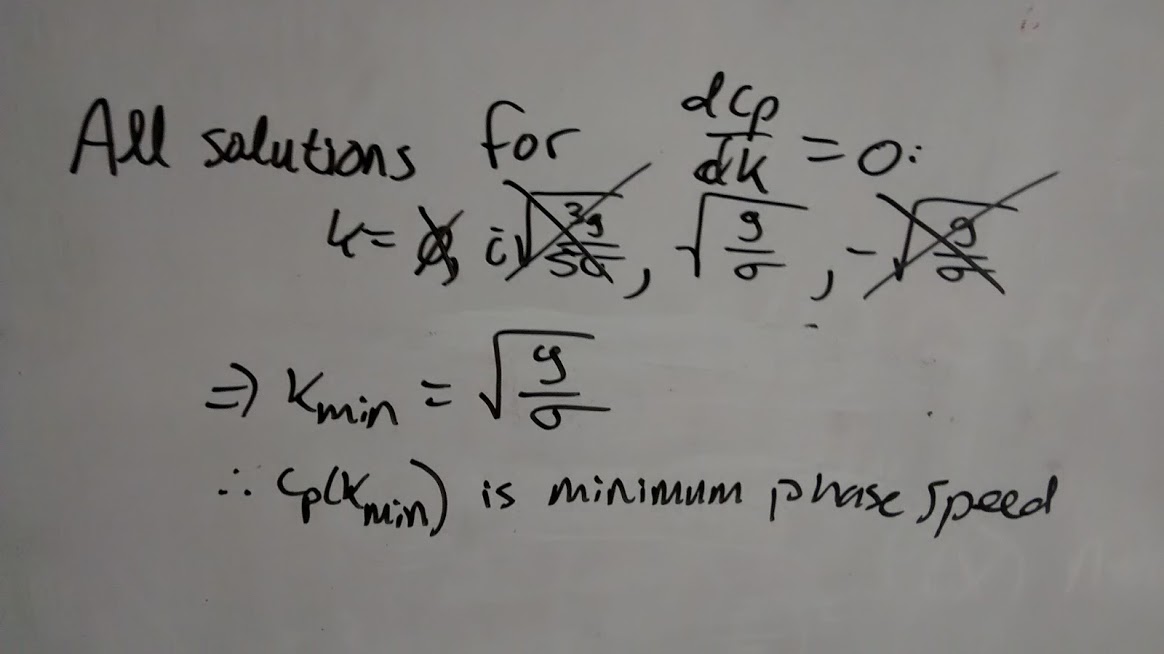 All solutions for dcp/dk = 0:
k = 0, i√(3g/5σ), √(g/σ), -√(g/σ)
⇒ kmin = √(g/σ)
∴ cp(kmin) is minimum phase speed